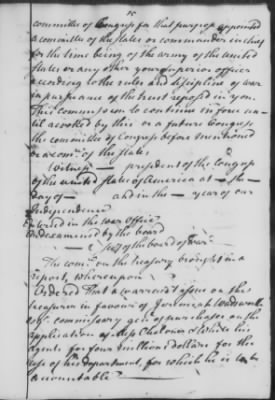 committee of Congress for that purpose appointed
a committee of the states or commander in chief
for the time being of the army of the united
states or any other your superior officer
according to the rules and discipline of war
in pursuance of the trust reposed in you.
This commission to continue in force un-
til revoked by this or a future Congress
the committee of Congress before mentioned
or a com.ee of the states
Witness — president of the Congress
of the united states of America at — the —
day of — and in the — year of our
Independence
Entered in the war office
and examined by the board
— Secy of the board of war.
The com.ee on the treasury brought in a
report, whereupon
Ordered That a warrant issue on the
treasurer in favour of Jeremiah Wadsworth
esq.r commissary gen.l of purchases on the
application of Mess Chaloner & White his
agents for four million dollars for the
use of his department, for which he is to be
accountable